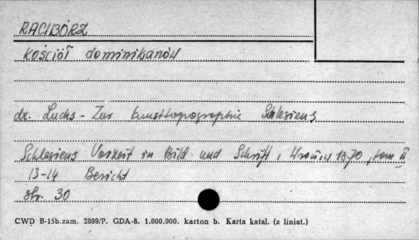 RACIBÓRZ
Kościół dominikanów
dr. Luchs - Zur Kunsttopographie Schlesiens
Schlesiens Vorzeit in Bild und Schrift, 1870, tom II
13-14 Bericht
str. 30
CWD B-15b.zam. 2899/P. GDA-8. 1.000.000. karton b. Karta katal. (z liniat.)